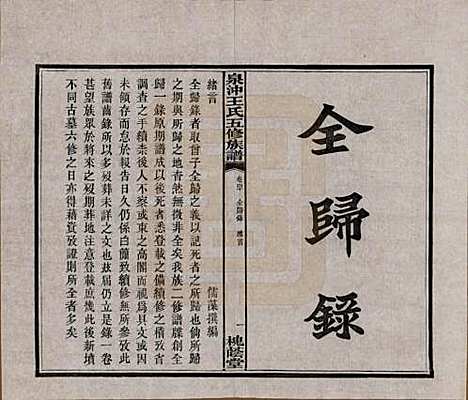 全歸錄
泉沖王氏五修族譜
卷 全歸錄 緒言
一
槐蔭堂
緒言
儒藻撰編
全歸錄者取曾子全歸之義以記死者之所歸也倘所歸
之期與所歸之地杳然無徵非全矣我族二修譜牒創全
歸一錄原期譜成以後死者悉登載之備續修之稽核
調查之手續奈後人不察或束之高閣而視為具文或亦
未領存而怠於報告日久仍係白簿致續修無所參攷此
舊譜齒錄所以多歿葬未詳之文也茲屆仍立全歸錄一卷
甚望族眾於將來之歿期葬地注意登載庶幾此後新墳
不同古墓六修之日亦得藉資攷證則所全者多矣